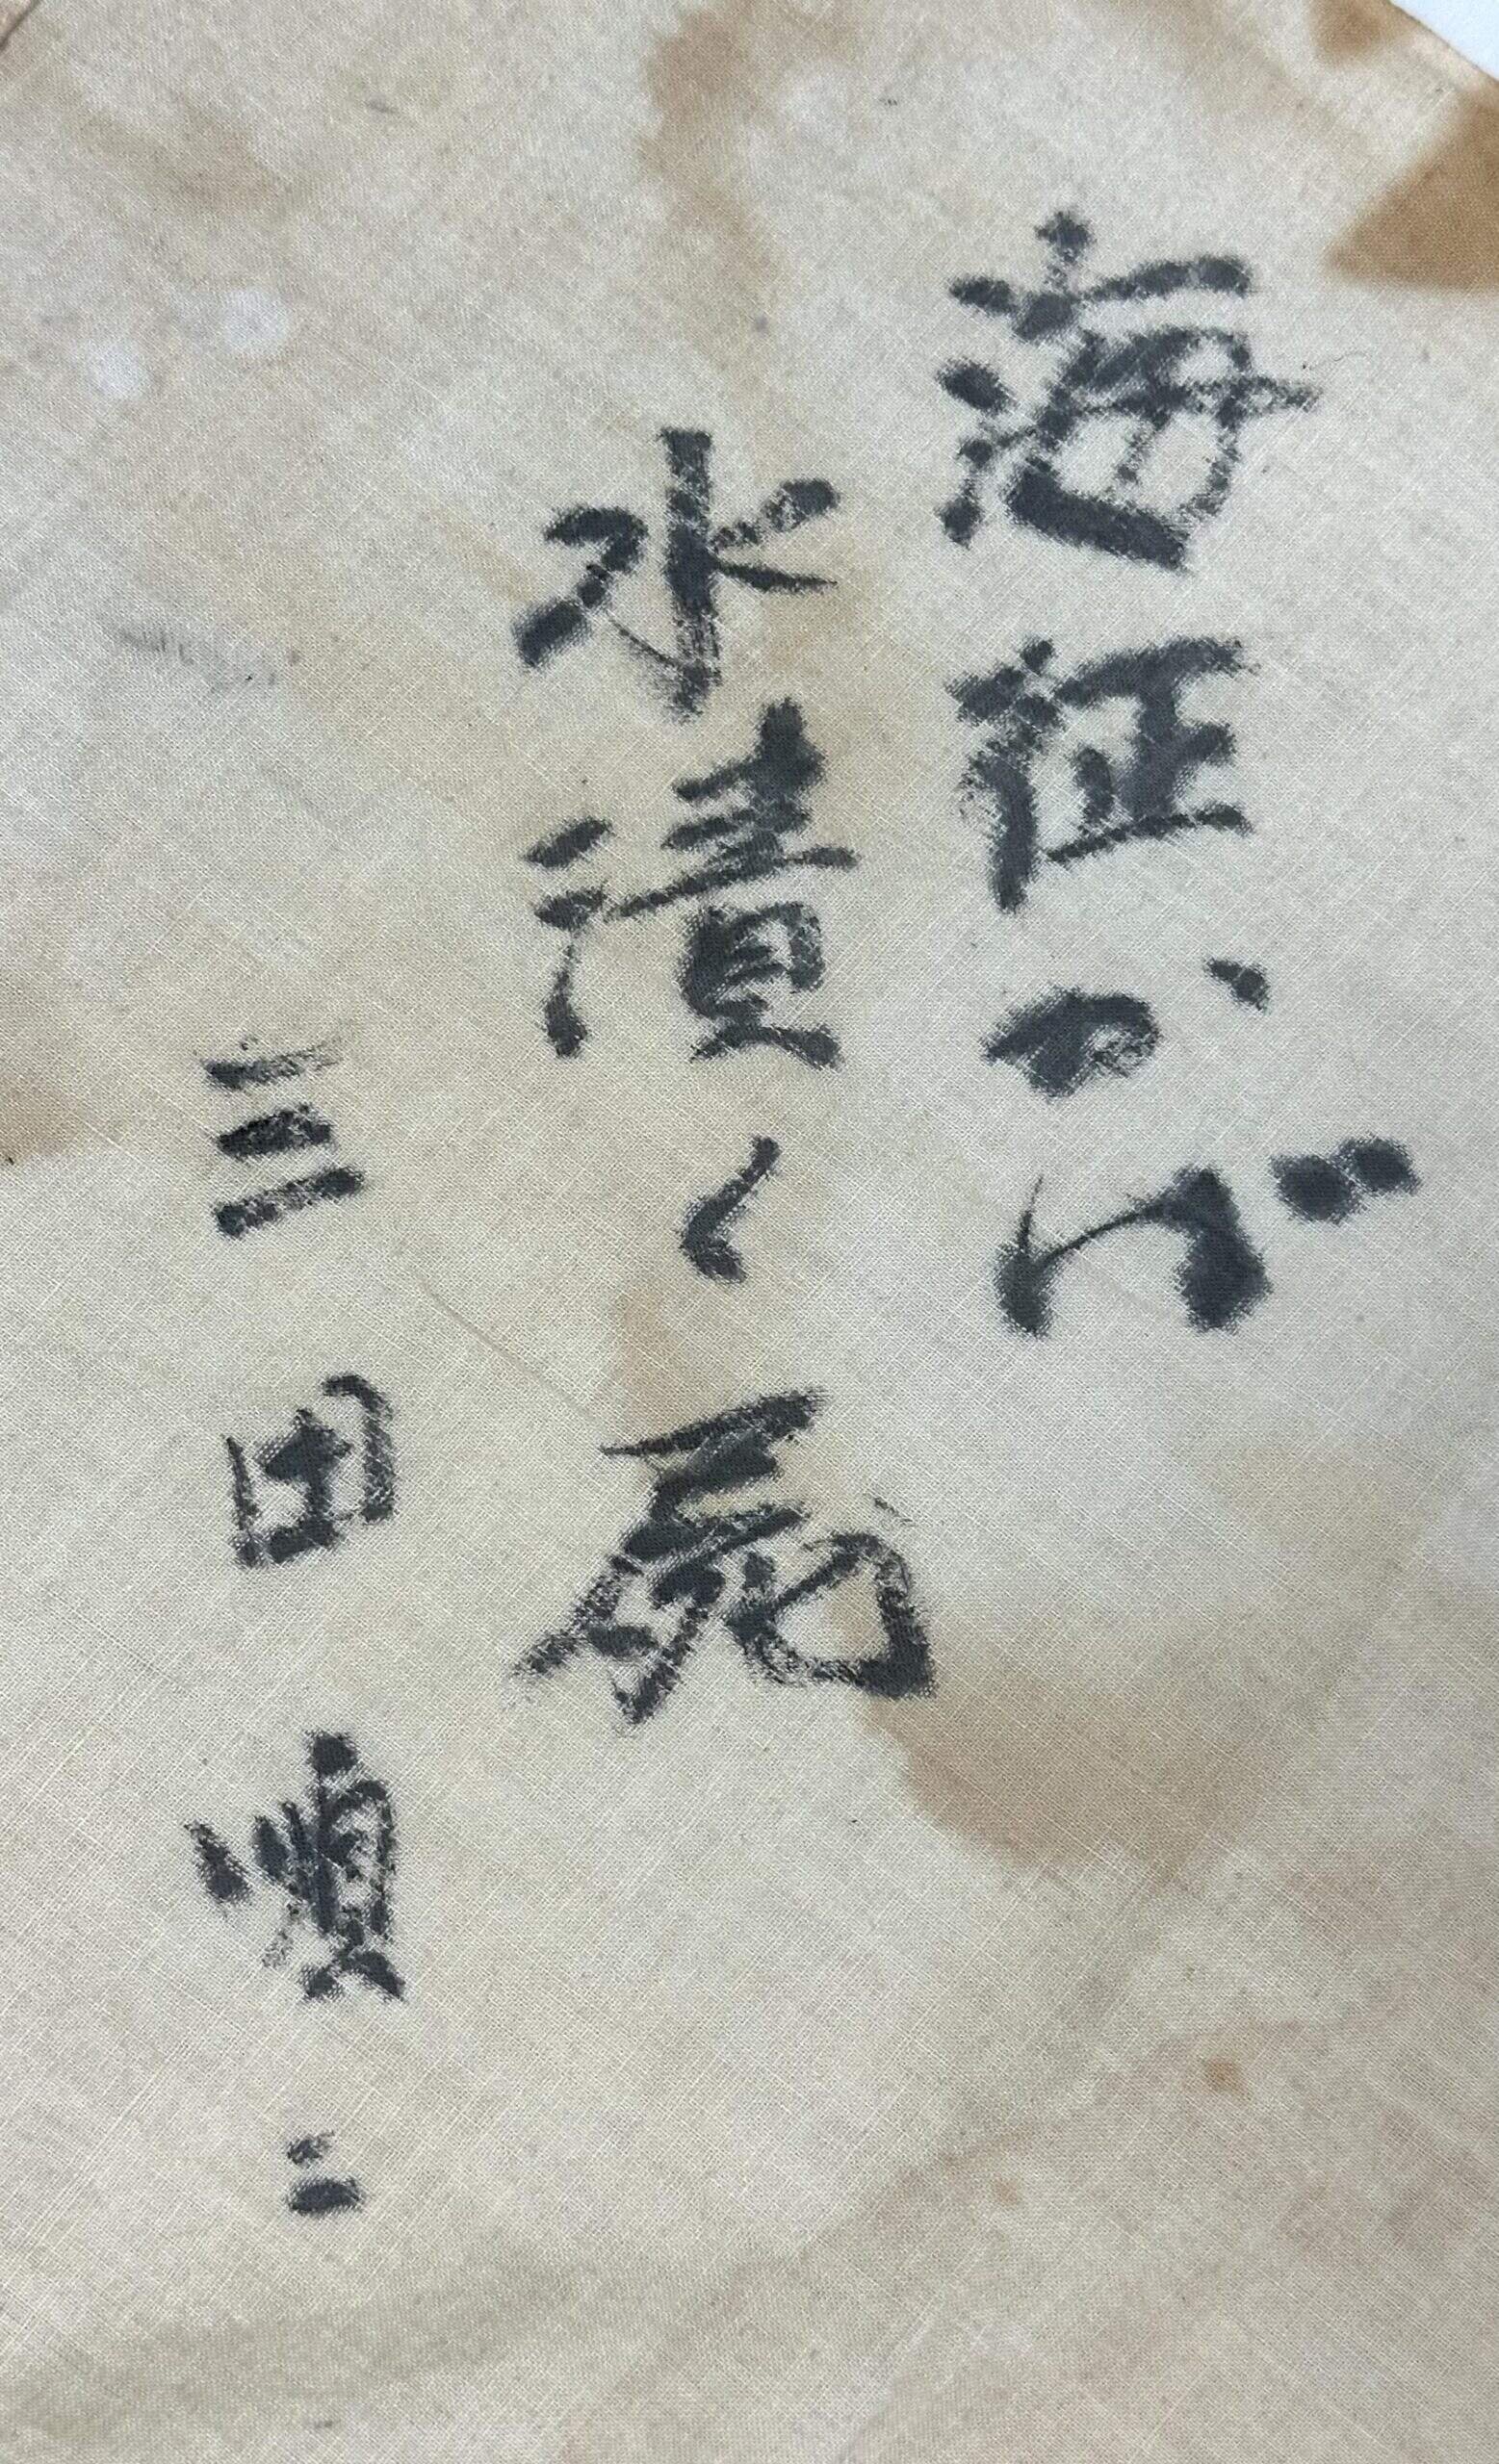 海征かば
水漬く屍
三田順二